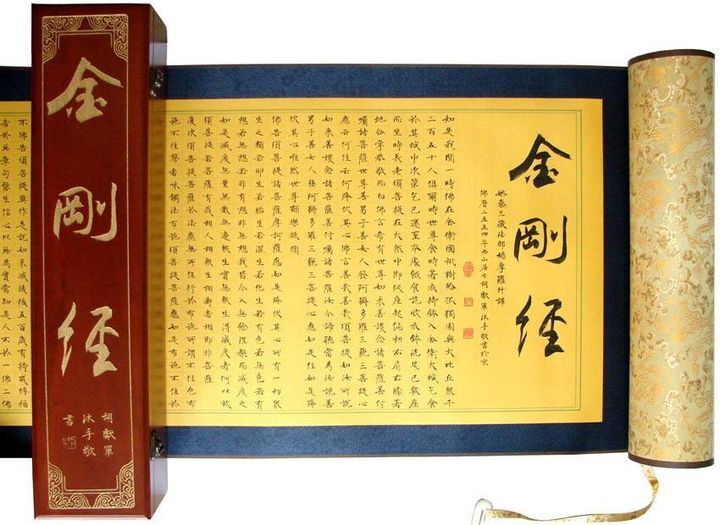 金剛经
姚秦三藏法師鳩摩羅什譯
佛曆二五五四年西山居士胡猷軍沐手敬書於京
如是我聞一時佛在舍衛國祇樹給孤獨園與大比丘眾千
二百五十人俱爾時世尊食時著衣持鉢入舍衛大城乞食
於其城中次第乞已還至本處飯食訖收衣鉢洗足已敷座
而坐時長老須菩提在大眾中即從座起偏袒右肩右膝著
地合掌恭敬而白佛言希有世尊如來善護念諸菩薩善付
囑諸菩薩世尊善男子善女人發阿耨多羅三藐三菩提心
應云何住云何降伏其心佛言善哉善哉須菩提如汝所說
如來善護念諸菩薩善付囑諸菩薩汝今諦聽當為汝說善
男子善女人發阿耨多羅三藐三菩提心應如是住如是降
伏其心唯然世尊願樂欲聞
佛告須菩提諸菩薩摩訶薩應如是降伏其心所有一切眾
生之類若卵生若胎生若濕生若化生若有色若無色若有
想若無想若非有想非無想我皆令入無餘涅槃而滅度之
如是滅度無量無數無邊眾生實無眾生得滅度者何以故
須菩提若菩薩有我相人相眾生相壽者相即非菩薩
復次須菩提菩薩於法應無所住行於布施所謂不住色布
施不住聲香味觸法布施須菩提菩薩應如是布施不住於
金剛经
胡猷軍
沐手敬
書
不佛告須菩提莫作是說如來滅後後五百歲有持戒修福
者於此章句能生信心以此為實當知是人不於一佛二佛